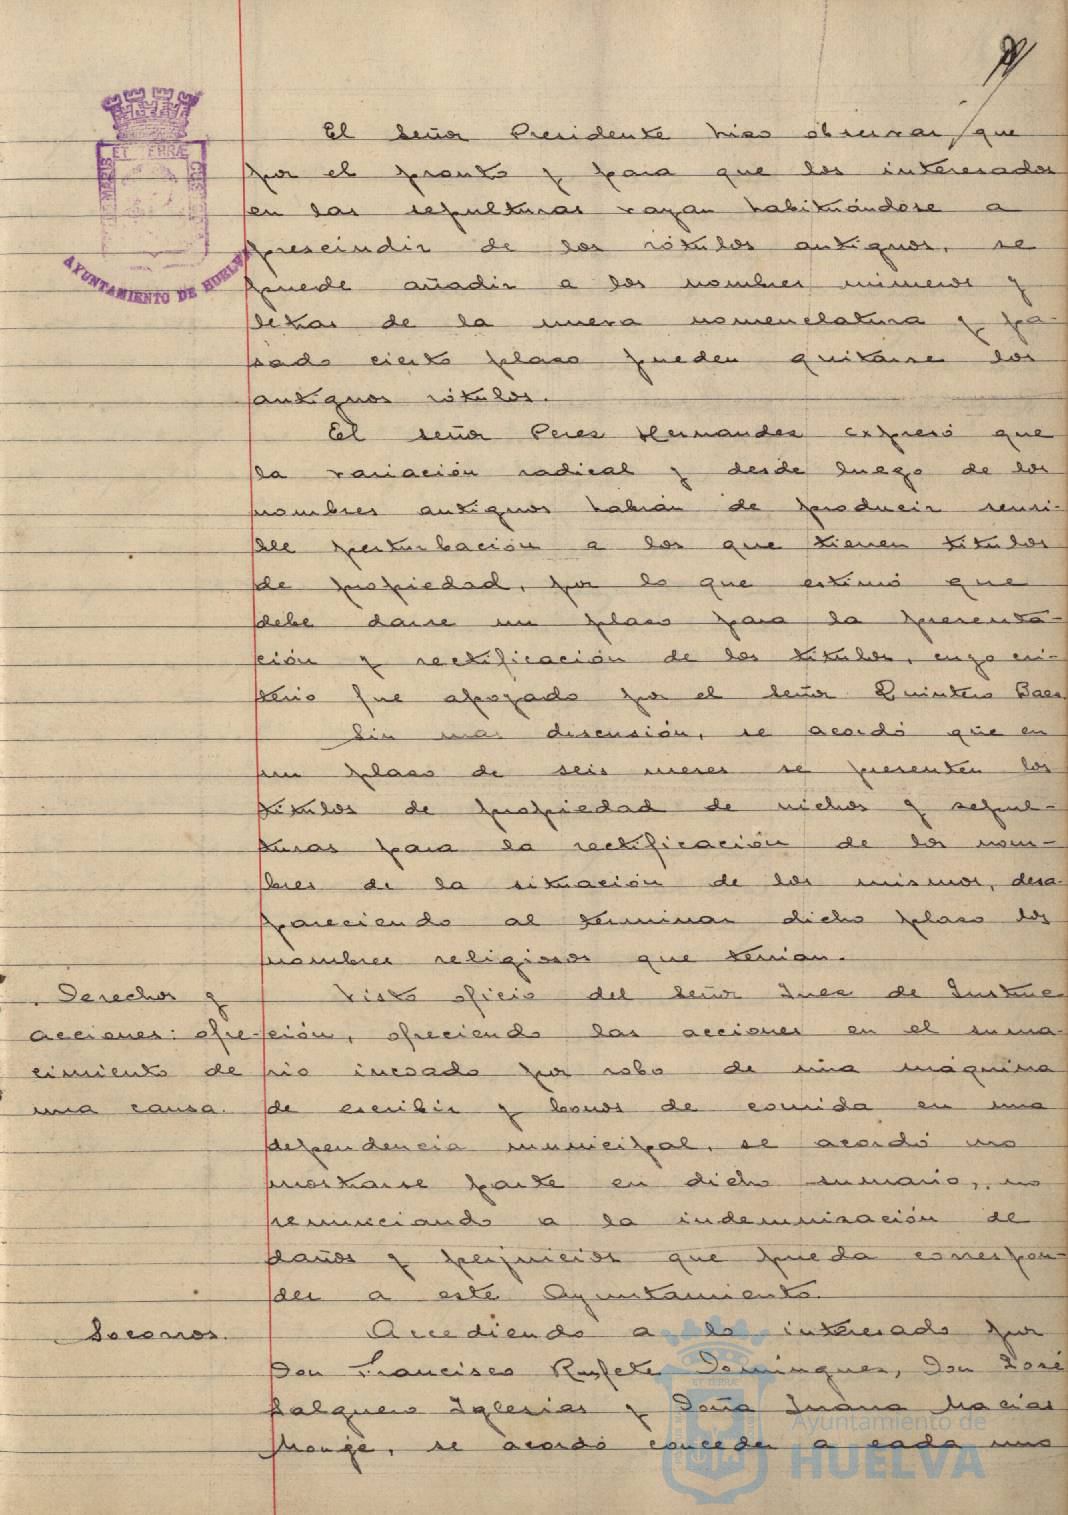 ET TERRÆ
AYUNTAMIENTO DE HUELVA
El Señor Presidente hizo observar que
por el pronto y para que los interesados
en las sepulturas vayan habituándose a
prescindir de los rótulos antiguos, se
puede añadir a los nombres números y
letras de la nueva nomenclatura y pa-
sado cierto plazo pueden quitarse los
antiguos rótulos.
El señor Perez Hernandez expresó que
la variación radical y desde luego de los
nombres antiguos habrán de producir sensi-
ble perturbación a los que tienen titulos
de propiedad, por lo que estimó que
debe darse un plazo para la presenta-
ción y rectificación de los titulos, cuyo cri-
terio fue apoyado por el señor Quintero Baez
Sin mas discusión, se acordó que en
un plazo de seis meses se presenten los
titulos de propiedad de nichos y sepul-
turas para la rectificación de los nom-
bres de la situación de los mismos, desa-
pareciendo al terminar dicho plazo los
nombres religiosos que tenian.
Derechos y
acciones: ofre-
cimiento de
una causa.
Visto oficio del Señor Juez de Instruc-
ción, ofreciendo las acciones en el suma-
rio incoado por robo de una máquina
de escribir y bonos de comida en una
dependencia municipal, se acordó no
mostrarse parte en dicho sumario, no
renunciando a la indemnización de
daños y perjuicios que pueda correspon-
der a este Ayuntamiento.
Socorros.
Accediendo a lo interesado por
Don Francisco Rufete Dominguez, Don José
Salguero Iglesias y Doña Juana Macias
Monge, se acordó conceder a cada uno
Ayuntamiento de
HUELVA